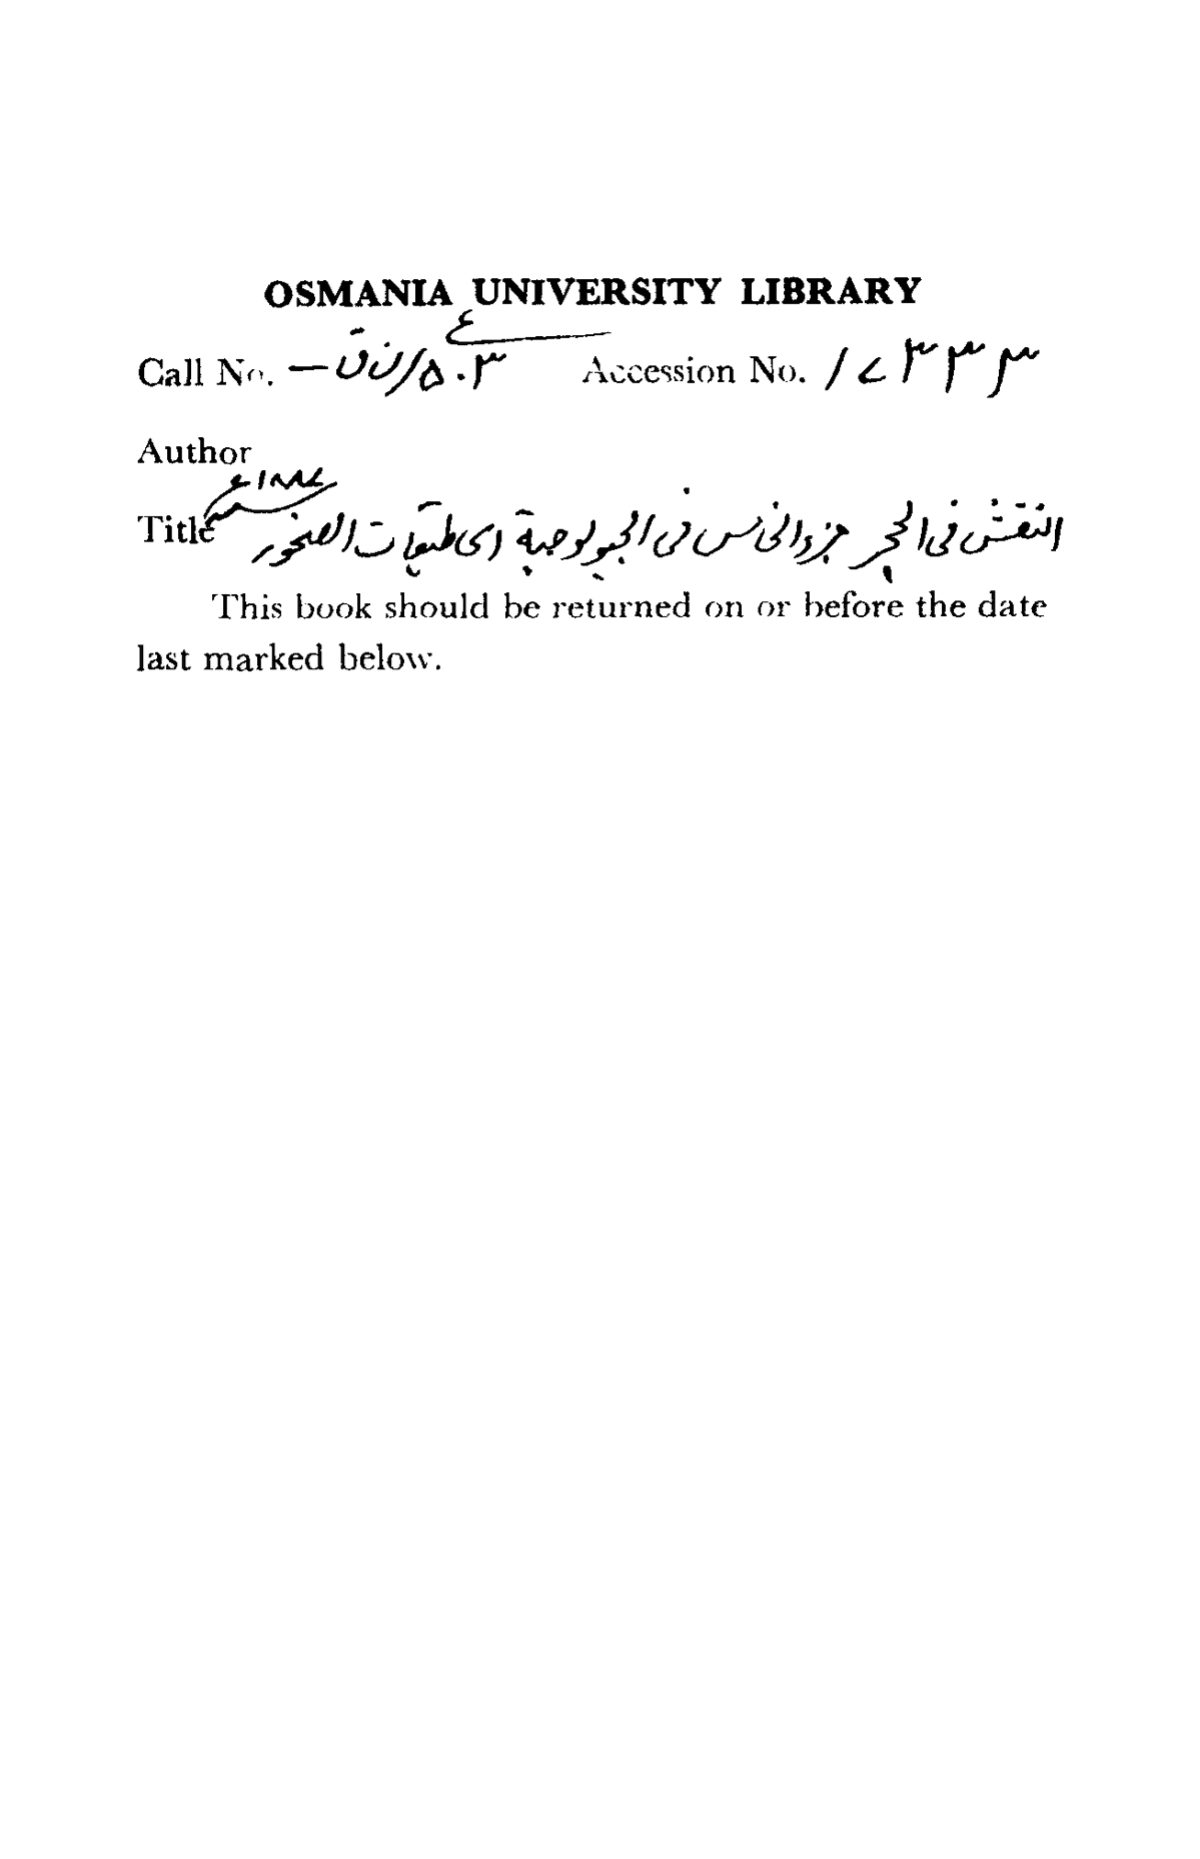 OSMANIA UNIVERSITY LIBRARY
Call No. ع ٥٠٣/ن ق — Accession No. ١٧٣٣٣
Author
Title النقش فی الحجر جزء الخامس فی الجیولوجیة ای طبقات الصخور ١٨٨٤ء
This book should be returned on or before the date
last marked below.